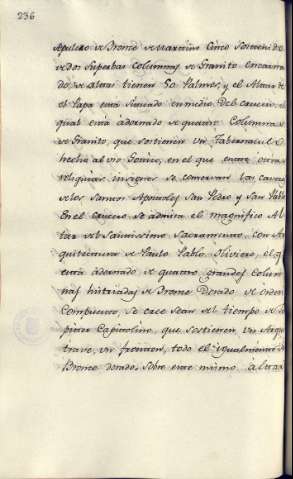 236
Sepulcro de Bronce de Martino Cinco sostenido
de dos superbas Columnas de Granito encarna
do de altura tienen 50 Palmos, y el Altar de
el Papa esta situado en medio del crucero, el
qual está adornado de quatro Columnas
de Granito, que sostienen un Tabernaculo
hecho al uso Gotico, en el que entre otras
reliquias insignes se conservan las cavezas
de los Santos Apostoles San Pedro y San Pablo
En el crucero se admira el magnifico Al
tar del Santissimo Sacramento con Ar
quitectura de Paulo Pablo Oliviero, el q
está adornado de quatro grandes Colum
nas histriadas de Bronce Dorado de orden
Compuesto, se cree sean del tiempo de
Capitolino, que sostienen un Arqui
trave, un fronton, todo el igualmente de
Bronce dorado, sobre este mismo Altar